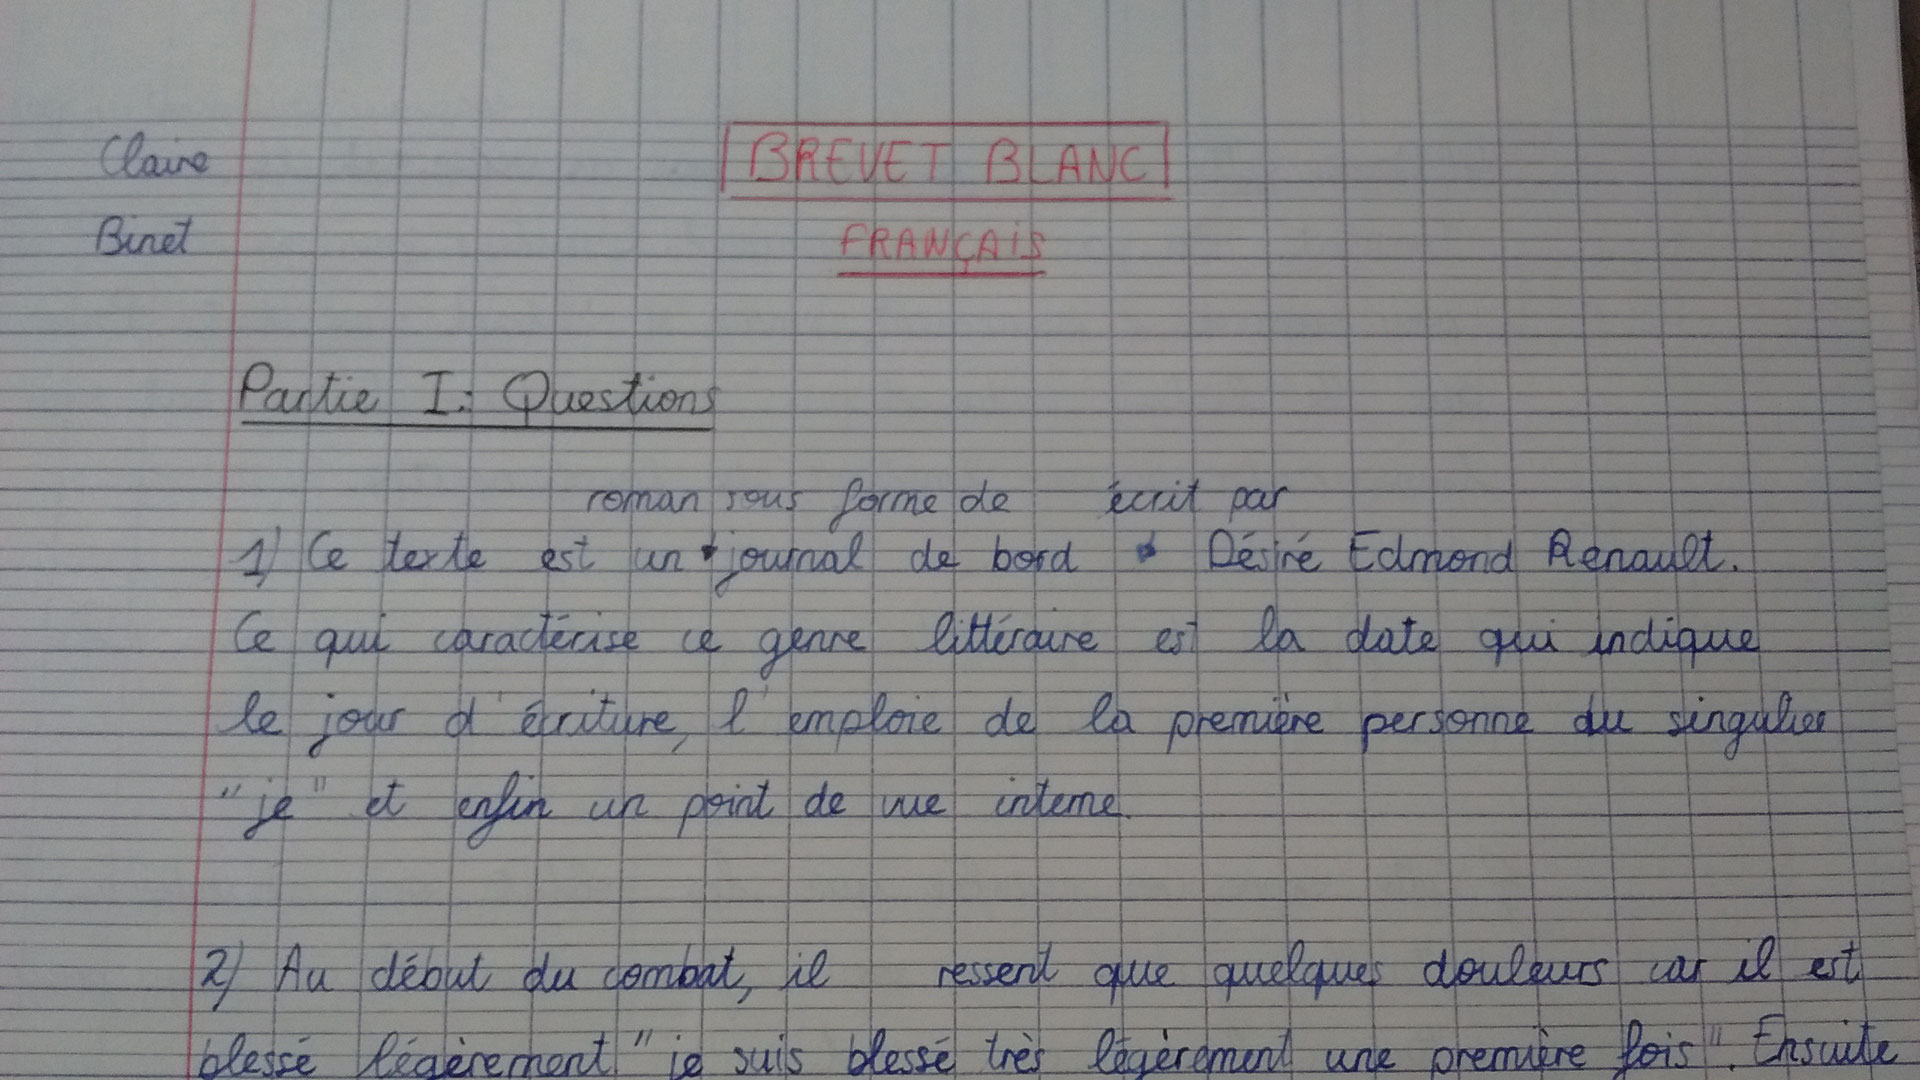 Claire
BREVET BLANC
Binet
FRANÇAIS
Partie I : Questions
roman sous forme de écrit par
1) Ce texte est un journal de bord Désiré Edmond Renault.
Ce qui caractérise ce genre littéraire est la date qui indique
le jour d'écriture, l'emploie de la première personne du singulier
"je" et enfin un point de vue interne.
2) Au début du combat, il ressent que quelques douleurs car il est
blessé légèrement "je suis blessé très légèrement une première fois". Ensuite